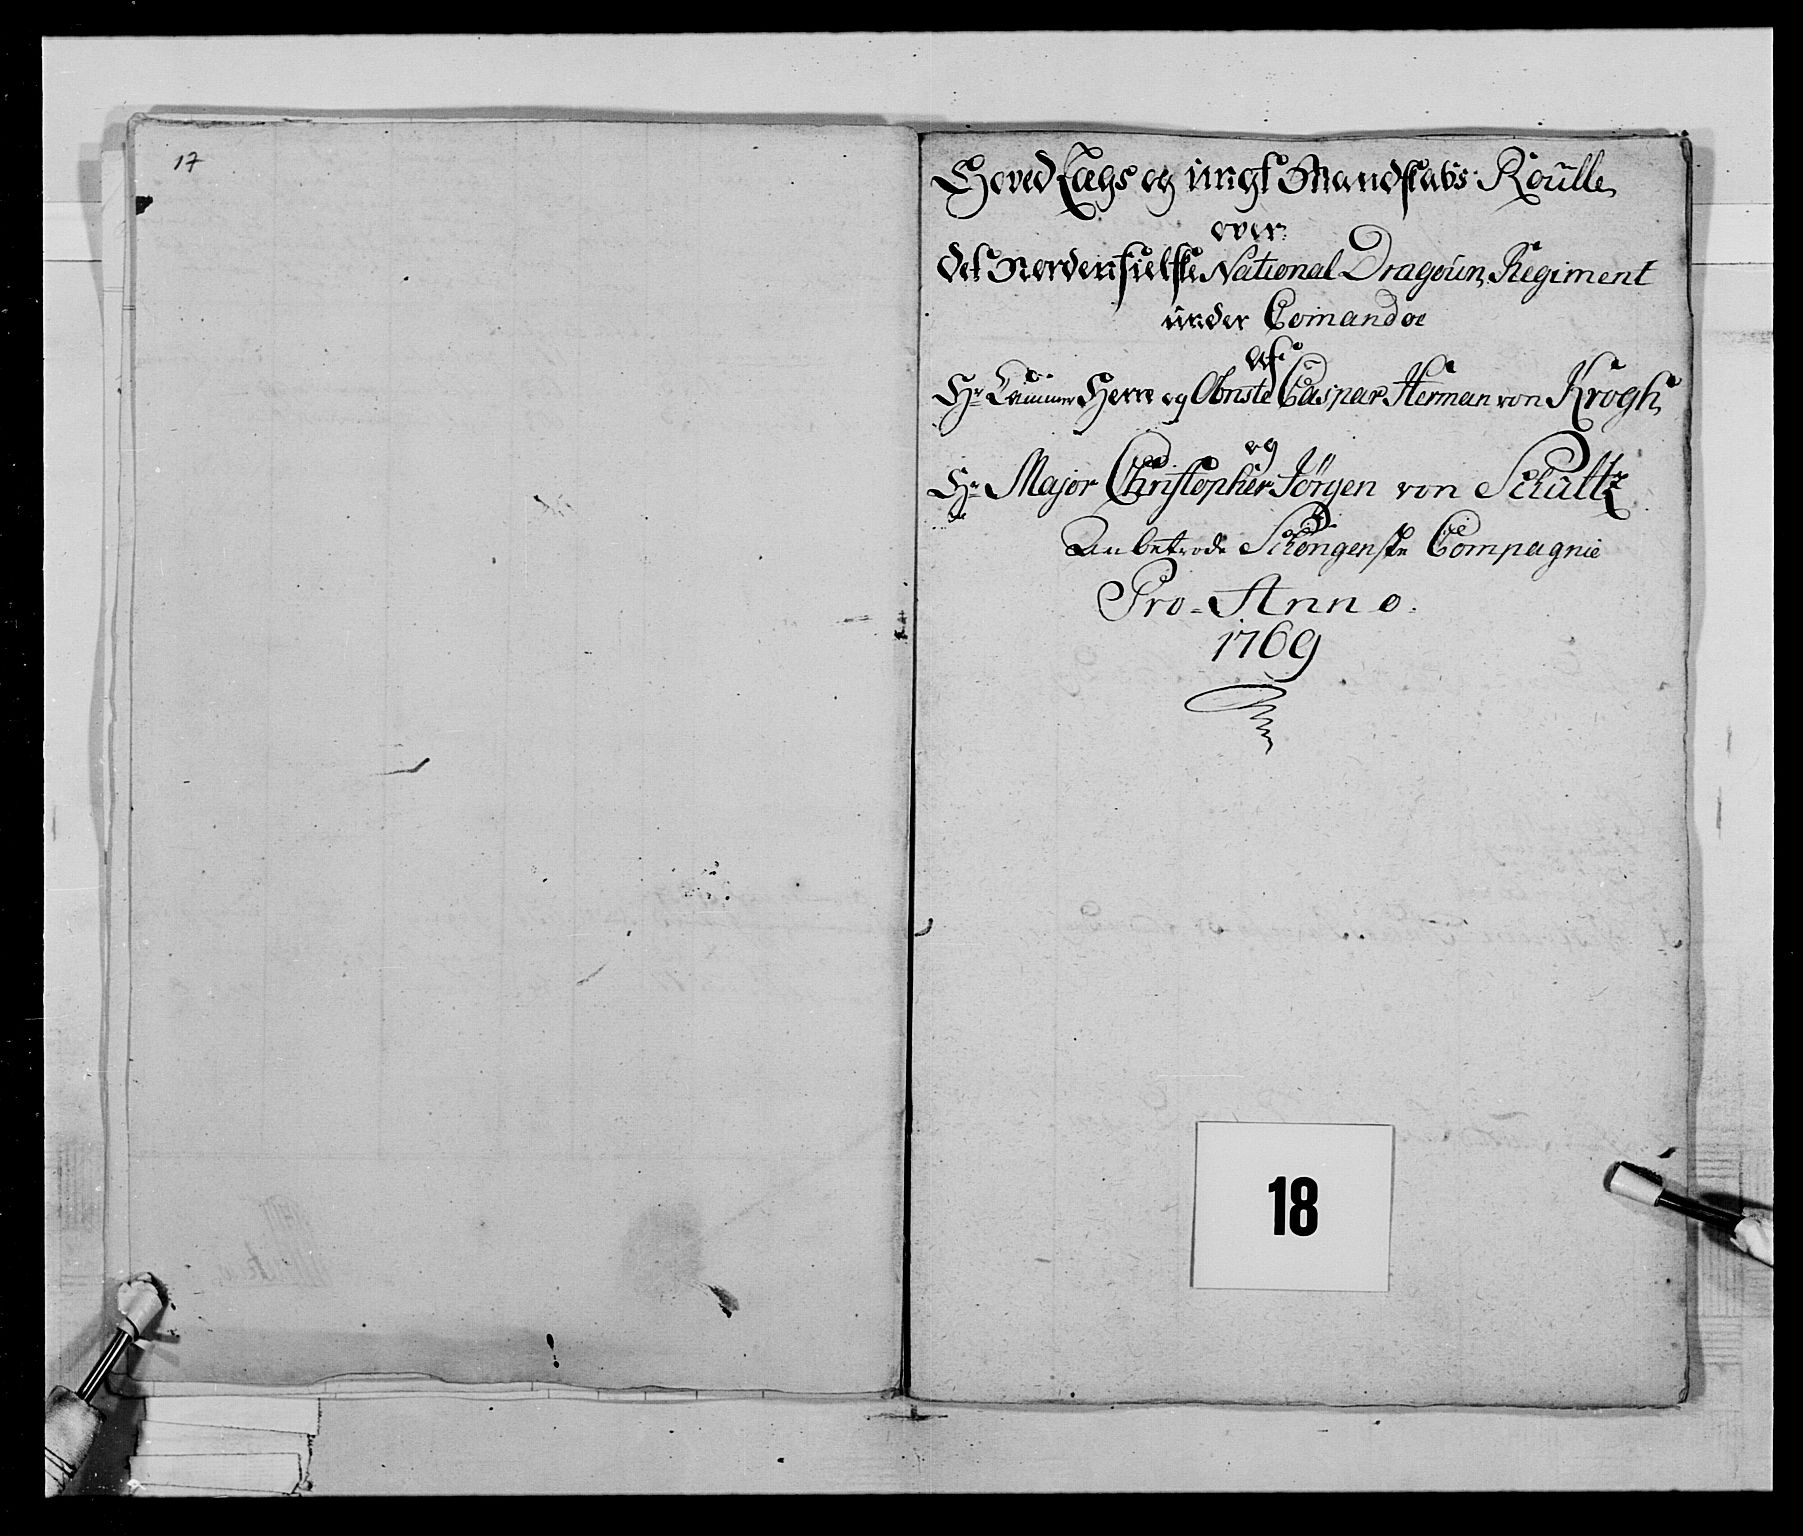 17
Hoved Lægs og ungt Mandskabs Roulle
over
det Nordenfielske National Dragoun Regiment
under Comandoe
af
Hr Cammer Herre og Obriste Caspar Herman von Krogh
og
Hr Major Christopher Jörgen von Schultz
Anbetrode Schöngenske Compagnie
Pro-Anno.
1769
18